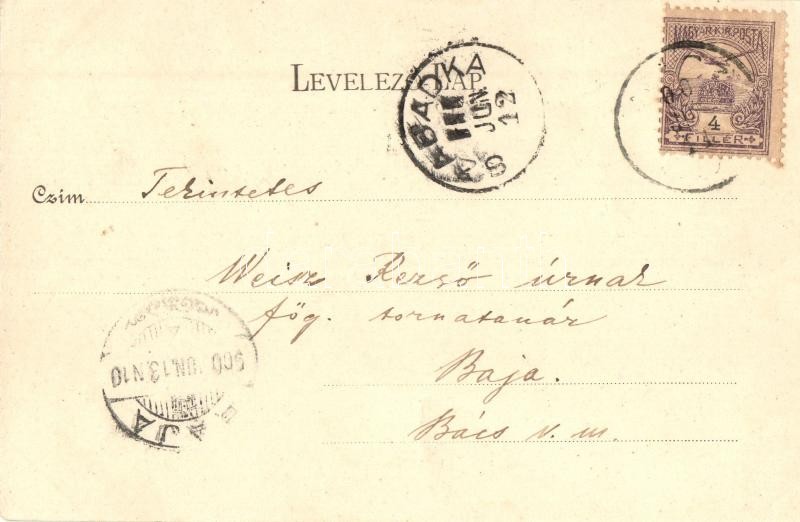 MAGYAR KIR. POSTA
LEVELEZŐ-LAP
SZABADKA
JUN
12
4
FILLÉR
Czim Tekintetes
Weisz Rezső úrnak
főg. tornatanár
Baja.
Bács v. m.
900 JUN. 13. N10
BAJA